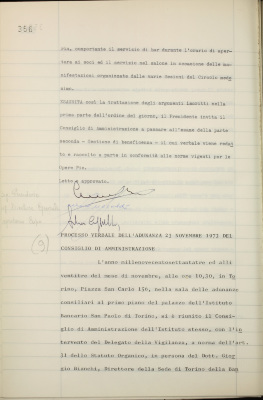 356
ria, comportante il servizio di bar durante l'orario di aper-
tura ai soci ed il servizio nel salone in occasione delle ma-
nifestazioni organizzate dalle varie Sezioni del Circolo med
simo.
ESAURITA così la trattazione degli argomenti iscritti nella
prima parte dell'ordine del giorno, il Presidente invita il
Consiglio di Amministrazione a passare all'esame della parte
seconda - Gestione di Beneficenza - di cui verbale viene redat
to e raccolto a parte in conformità alle norme vigenti per le
Opere Pie.
Letto e approvato.
(9)
PROCESSO VERBALE DELL'ADUNANZA 23 NOVEMBRE 1973 DEL
CONSIGLIO DI AMMINISTRAZIONE
L'anno millenovecentosettantatre ed alli
ventitre del mese di novembre, alle ore 10,30, in To
rino, Piazza San Carlo 156, nella sala delle adunanze
consiliari al primo piano del palazzo dell'Istituto
Bancario San Paolo di Torino, si è riunito il Consi-
glio di Amministrazione dell'Istituto stesso, con l'in
tervento del Delegato della Vigilanza, a norma dell'art.
11 dello Statuto Organico, in persona del Dott. Gior
gio Bianchi, Direttore della Sede di Torino della Ban